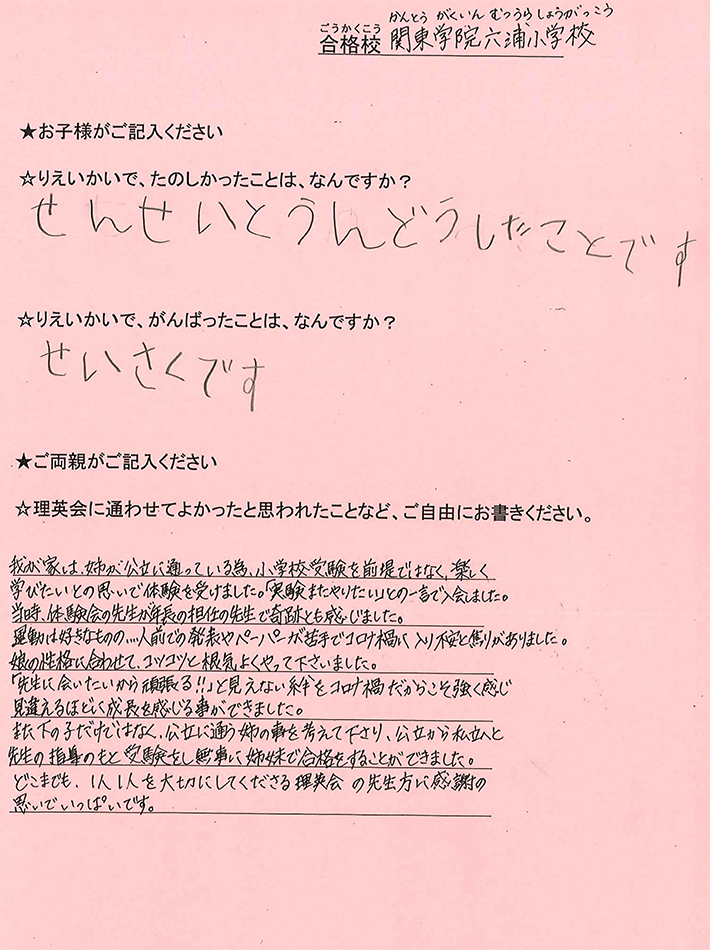 かんとう がくいん むつうらしょうがっこう
ごうかくこう
合格校 関東学院六浦小学校
★お子様がご記入ください
☆りえいかいで、たのしかったことは、なんですか？
せんせいとうんどうしたことです
☆りえいかいで、がんばったことは、なんですか？
せいさくです
★ご両親がご記入ください
☆理英会に通わせてよかったと思われたことなど、ご自由にお書きください。
我が家は、姉が公立に通っている為、小学校受験を前提ではなく、楽しく
学びたいとの思いで体験を受けました。「実験またやりたい」との一言で入会しました。
当時、体験会の先生が年長の担任の先生で奇跡とも感じました。
運動は好きなものの…人前での発表やペーパーが苦手でコロナ禍に入り不安と焦りがありました。
娘の性格に合わせて、コツコツと根気よくやって下さいました。
「先生に会いたいから頑張る!!」と見えない絆をコロナ禍だからこそ強く感じ
見違えるほどに成長を感じる事ができました。
また下の子だけではなく、公立に通う姉の事を考えて下さり、公立から私立へと
先生の指導のもと受験をし無事に姉妹で合格をすることができました。
どこまでも、1人1人を大切にしてくださる理英会の先生方に感謝の
思いでいっぱいです。